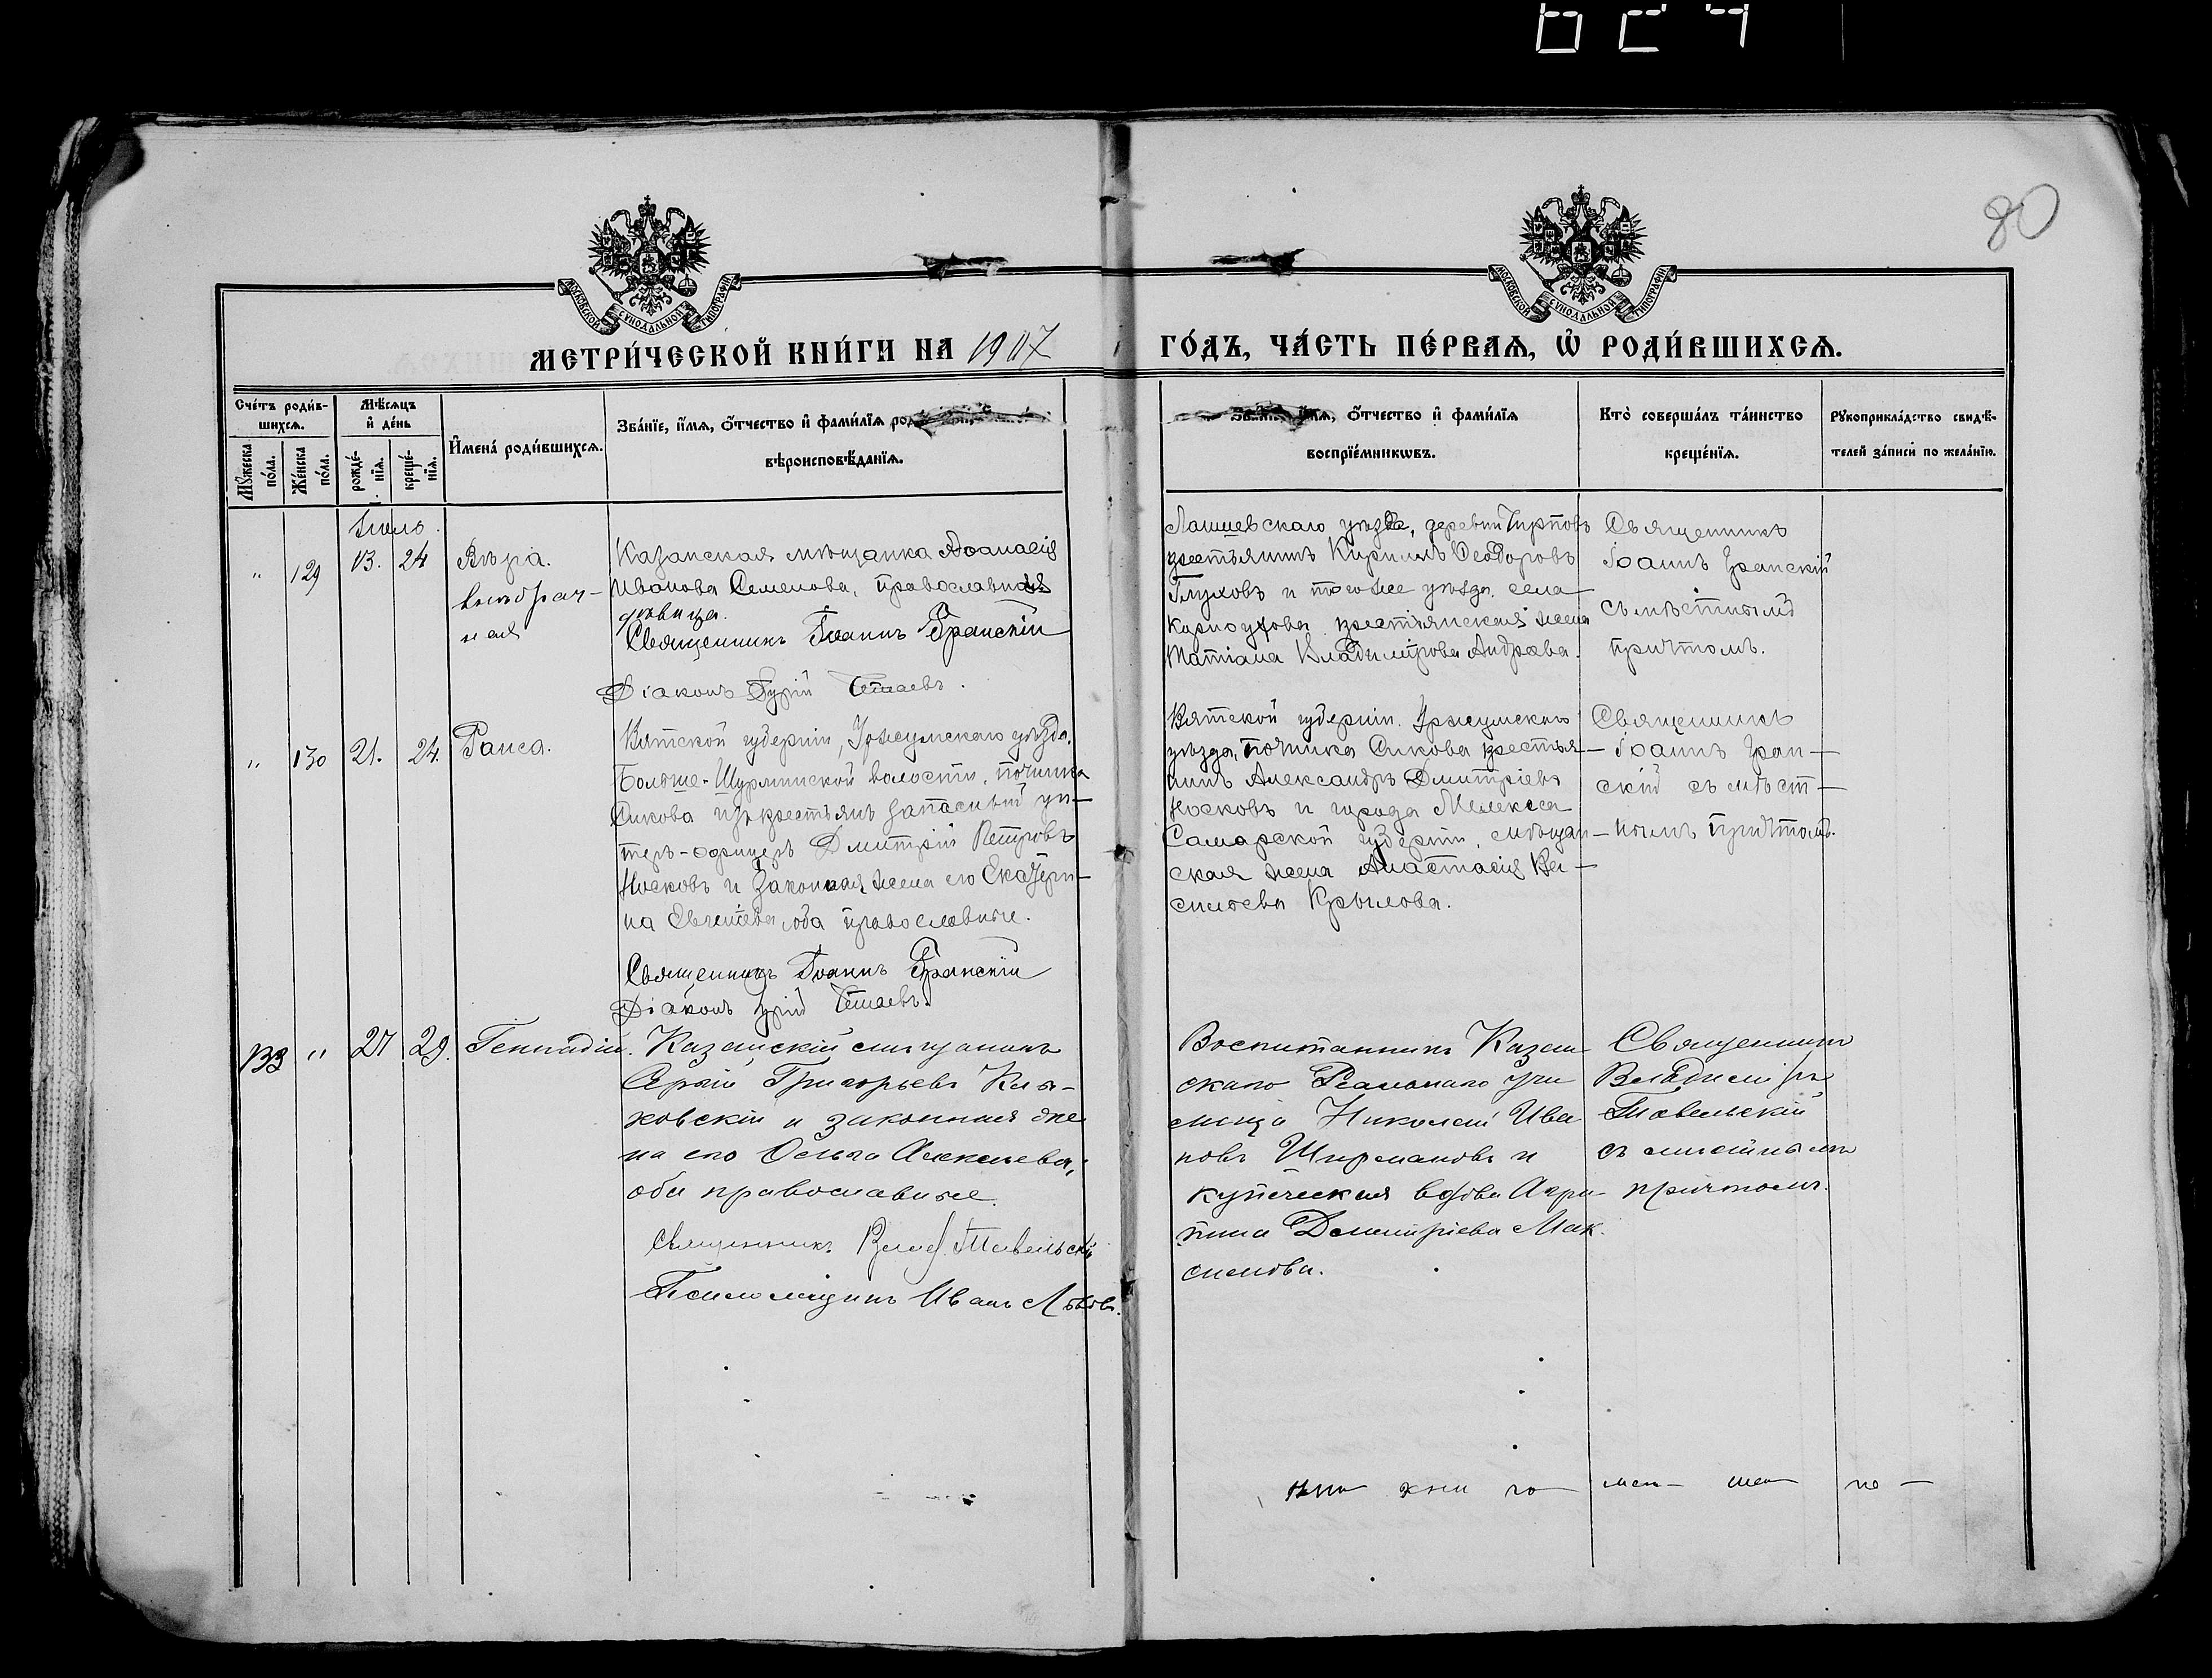 80
МОСКОВСКОЙ СѴНОДАЛЬНОЙ ТИПОГРАФІИ
МОСКОВСКОЙ СѴНОДАЛЬНОЙ ТИПОГРАФІИ
МЕТРИ́ЧЕСКОЙ КНИ́ГИ НА 1907
ГО́ДЪ, ЧА́СТЬ ПЕ́РВАѦ, Ѡ҆ РОДИ́ВШИХСѦ.
Сче́тъ роди́в-
шихсѧ.
Мѹ́жеска
по́ла.
Же́нска
по́ла.
Мѣ́сѧцъ
и҆ де́нь
рожде́-
нїѧ.
креще́-
нїѧ.
И҆мена̀ роди́вшихсѧ.
Зва́нїе, и҆́мѧ, ѻ҆́тчество и҆ фами́лїѧ
вѣроисповѣ́данїѧ.
и҆́мѧ, ѻ҆́тчество и҆ фами́лїѧ
воспрїе́мникѡвъ.
Кто̀ соверша́лъ та́инство
креще́нїѧ.
Рѹкоприкла́дство свидѣ́-
телей за́писи по жела́нїю.
Іюль.
" 129 13. 24 Вѣра.
внѣбрач-
ная
Казанская мѣщанка Аѳанасія
Иванова Семенова, православная
дѣвица.
Священникъ Іоаннъ Гранскій
Діаконъ Гурій
Лаишевскаго уѣзда, деревни
крестьянинъ Кириллъ Ѳеодоровъ
Глуховъ и того же уѣзда, села
крестьянская жена
Владимірова Андреева.
Священникъ
Іоаннъ Гранскій
съ мѣстнымъ
причтомъ.
" 130 21. 24. Раиса.
Вятской губерніи, Уржумскаго уѣзда,
Больше-Шурминской волости, починка
Сикова изъ крестьянъ запасный ун-
теръ-офицеръ Дмитрій Петровъ
Носковъ и законная жена его Екатери-
на оба православные.
Священникъ Іоаннъ Гранскій
Діаконъ Гурій
Вятской губерніи, Уржумскаго
уѣзда, починка Сикова крестья-
нинъ Александръ Дмитріевъ
Носковъ и города Мелекеса
Самарской губерніи, мѣщан-
ская жена Анастасія Ва-
сильева Крылова.
Священникъ
Іоаннъ Гран-
скій съ мѣст-
нымъ причтомъ.
133 " 27 29. Геннадій.
Казанскій мѣщанинъ
Сергій Григорьевъ Кля-
ховскій и законная же
на его Ольга Алексѣева,
оба православные.
Священникъ Влад. Тавельскій
Псаломщикъ Иванъ Львовъ.
Воспитанникъ Казан
скаго Реальнаго учи
лища Николай Ива
новъ Ширмановъ и
купеческая вдова Агри-
пина Димитріева Мак-
симова.
Священникъ
Владиміръ
Тавельскій
съ мѣстнымъ
причтомъ.